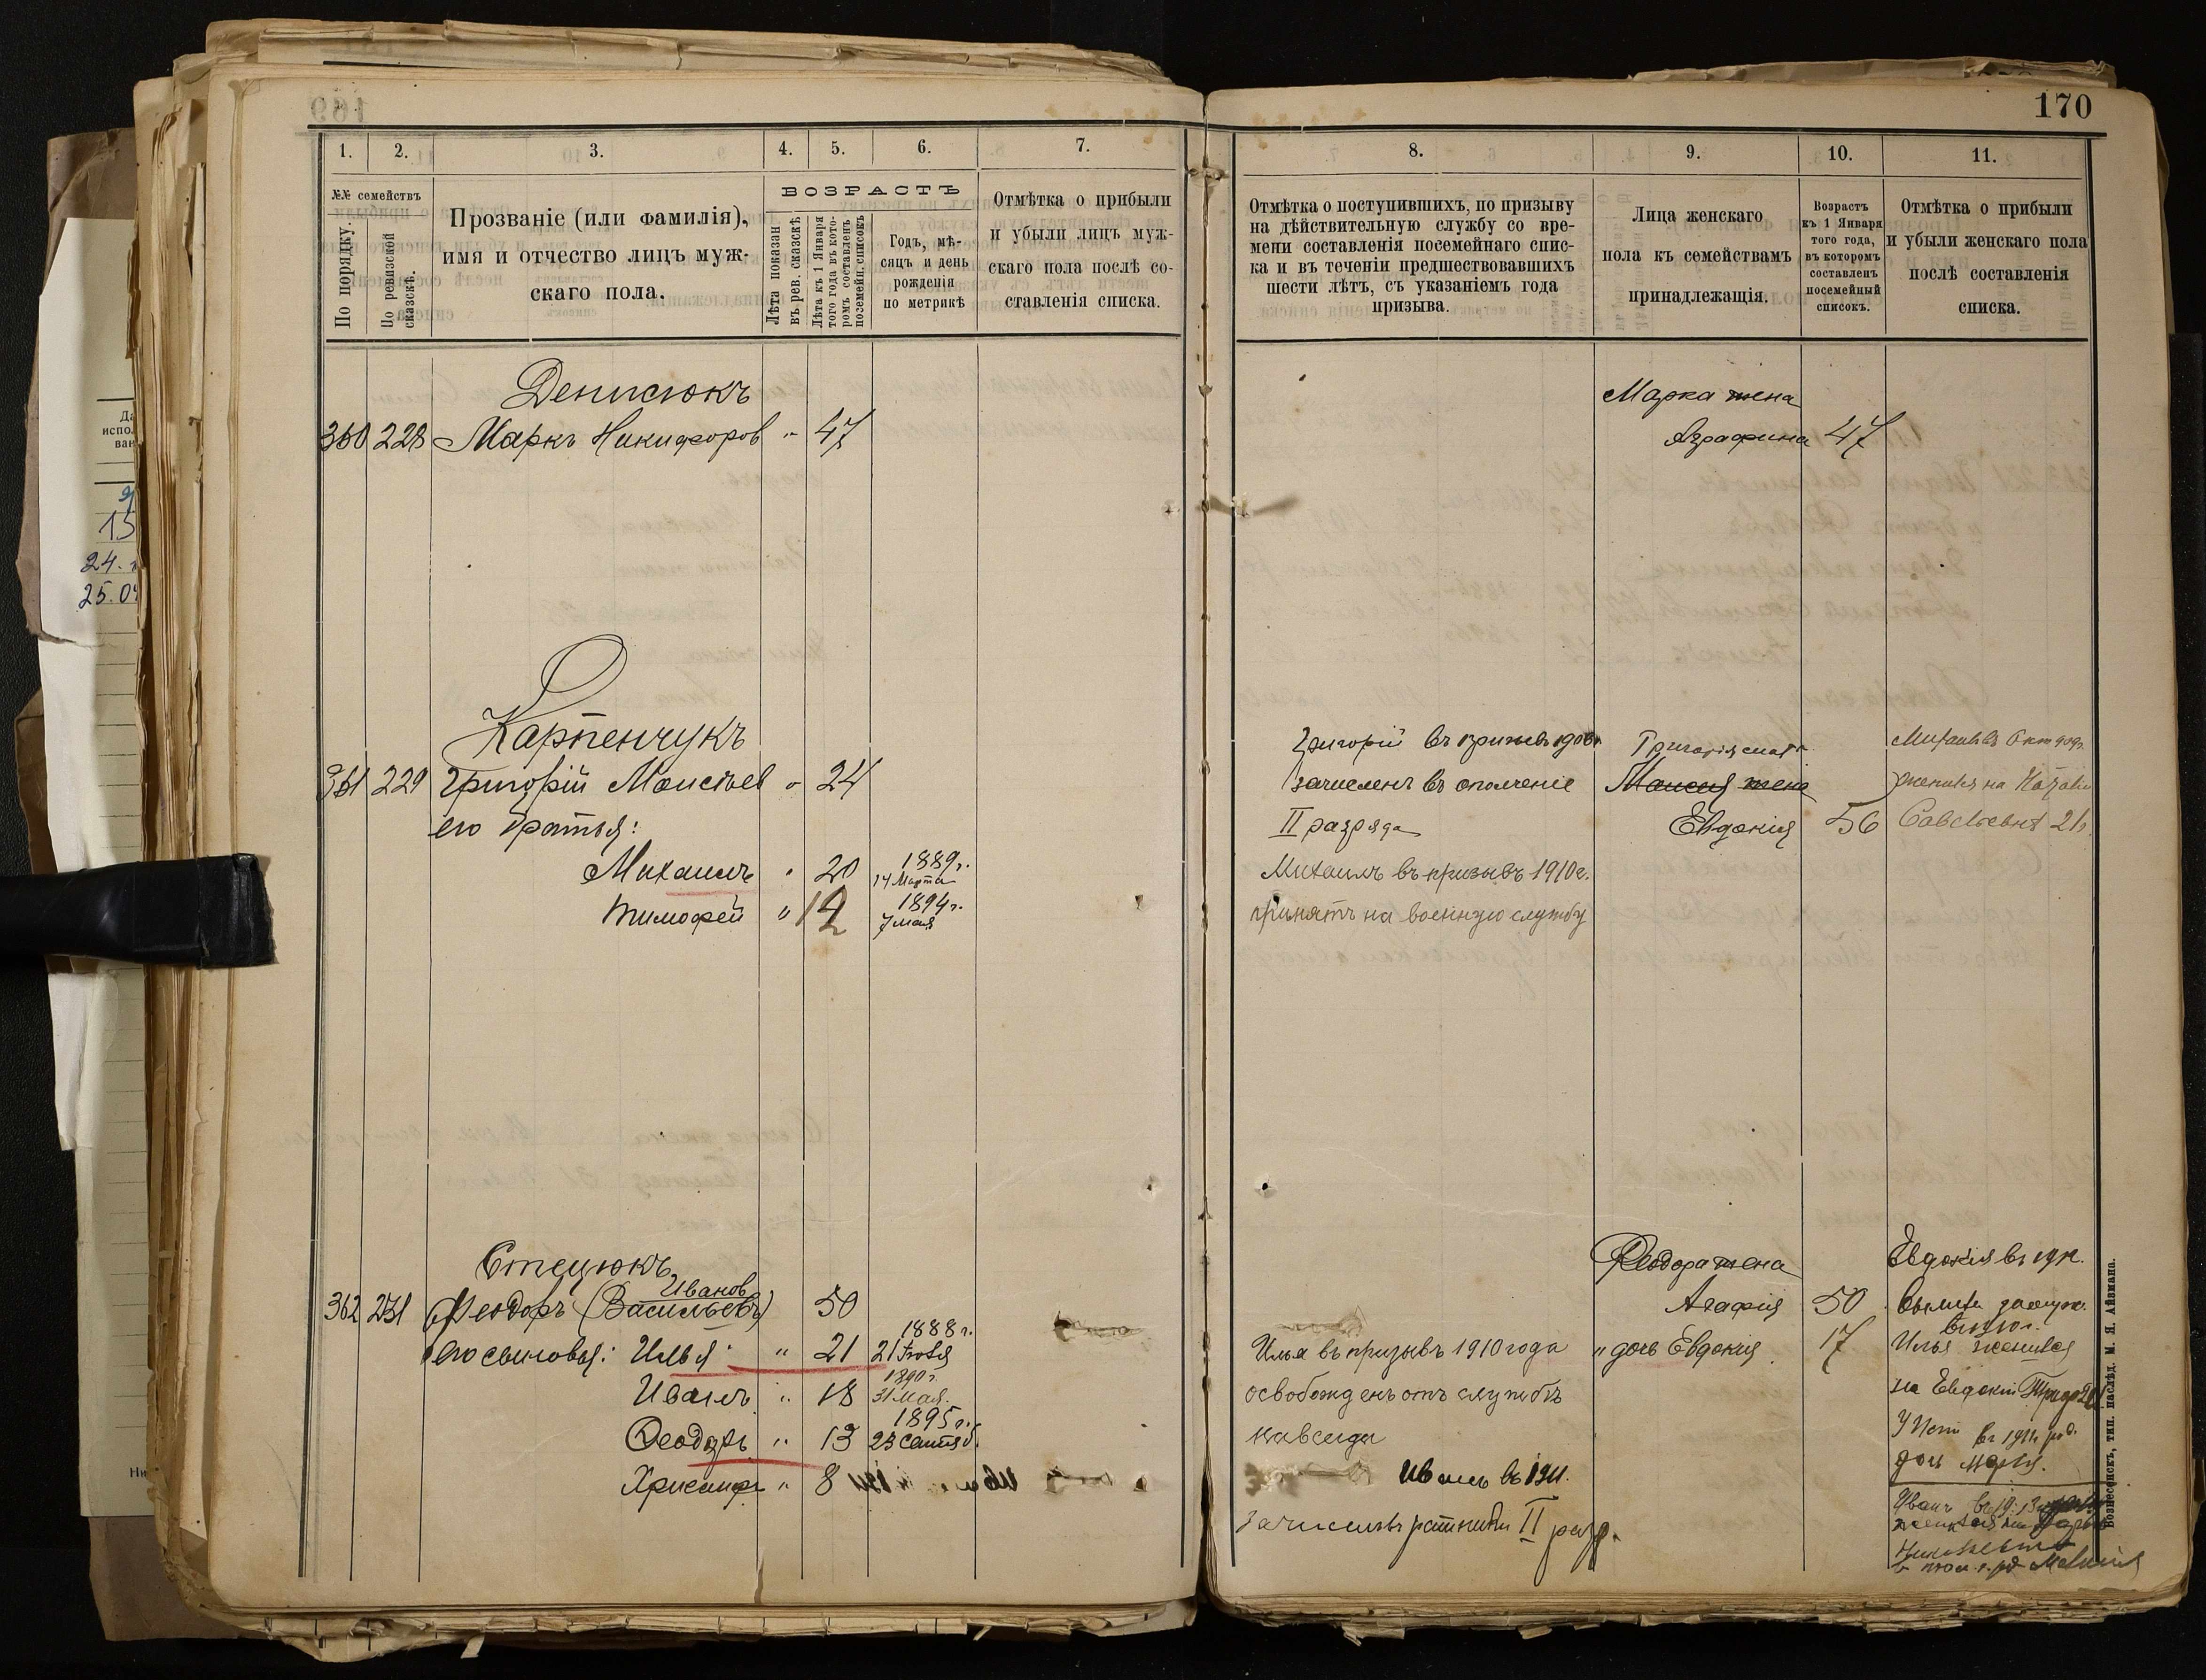 170
1. 2. 3. 4. 5. 6. 7.
№№ семействъ
По порядку.
По ревизской сказскѣ.
Прозваніе (или фамилія),
имя и отчество лицъ муж-
скаго пола.
ВОЗРАСТЪ
Лѣта показан
въ рев. сказскѣ
Лѣта къ 1 Января
того года въ кото-
ромъ составленъ
посемейн. списокъ
Годъ, мѣ-
сяцъ и день
рожденія
по метрикѣ
Отмѣтка о прибыли
и убыли лицъ муж-
скаго пола послѣ со-
ставленія списка.
Денисюкъ
360 228 Маркъ Никифоров " 47
Карпенчукъ
361 229 Григорій Моисѣев " 24
его братья:
Михаилъ " 20 1889 г.
14 Марта
Тимофей " 12 1894 г.
7 мая
Стецюкъ
Иванов
362 231 Феодоръ (Васильевъ) 50
его сыновья: Илья " 21 1888 г.
21
Иванъ " 18 1890 г.
31 Мая.
Феодоръ " 13 1895 г.
23 Сентяб.
Хрисанфъ " 8
8. 9. 10. 11.
Отмѣтка о поступившихъ, по призыву
на дѣйствительную службу со вре-
мени составленія посемейнаго спис-
ка и въ теченіи предшествовавшихъ
шести лѣтъ, съ указаніемъ года
призыва.
Лица женскаго
пола къ семействамъ
принадлежащія.
Возрастъ
къ 1 Января
того года,
въ которомъ
составленъ
посемейный
списокъ.
Отмѣтка о прибыли
и убыли женскаго пола
послѣ составленія
списка.
Марка жена
Аграфина 47
Григорій въ призывъ 1906 г.
зачисленъ въ ополченіе
II разряда
Михаилъ въ призывъ 1910 г.
принятъ на военную службу
Григорія мать
Моисея жена
Евдокія 56
Михаилъ въ
женился на
Савельевнѣ 21 г.
Феодора жена
Агафія 50
" дочь Евдокія 17
Илья въ призывъ 1910 года
освобожденъ отъ службы
навсегда
Иванъ въ 1911.
зачисленъ ратники II разр.
Евдокія въ
вышла замуж.
въ 1910 г.
Илья женился
на Евдокіи
въ 1911 род.
дочь Марія.
Иванъ въ 1913
Вознесенскъ, тип. наслѣд. М. Я. Айзмана.